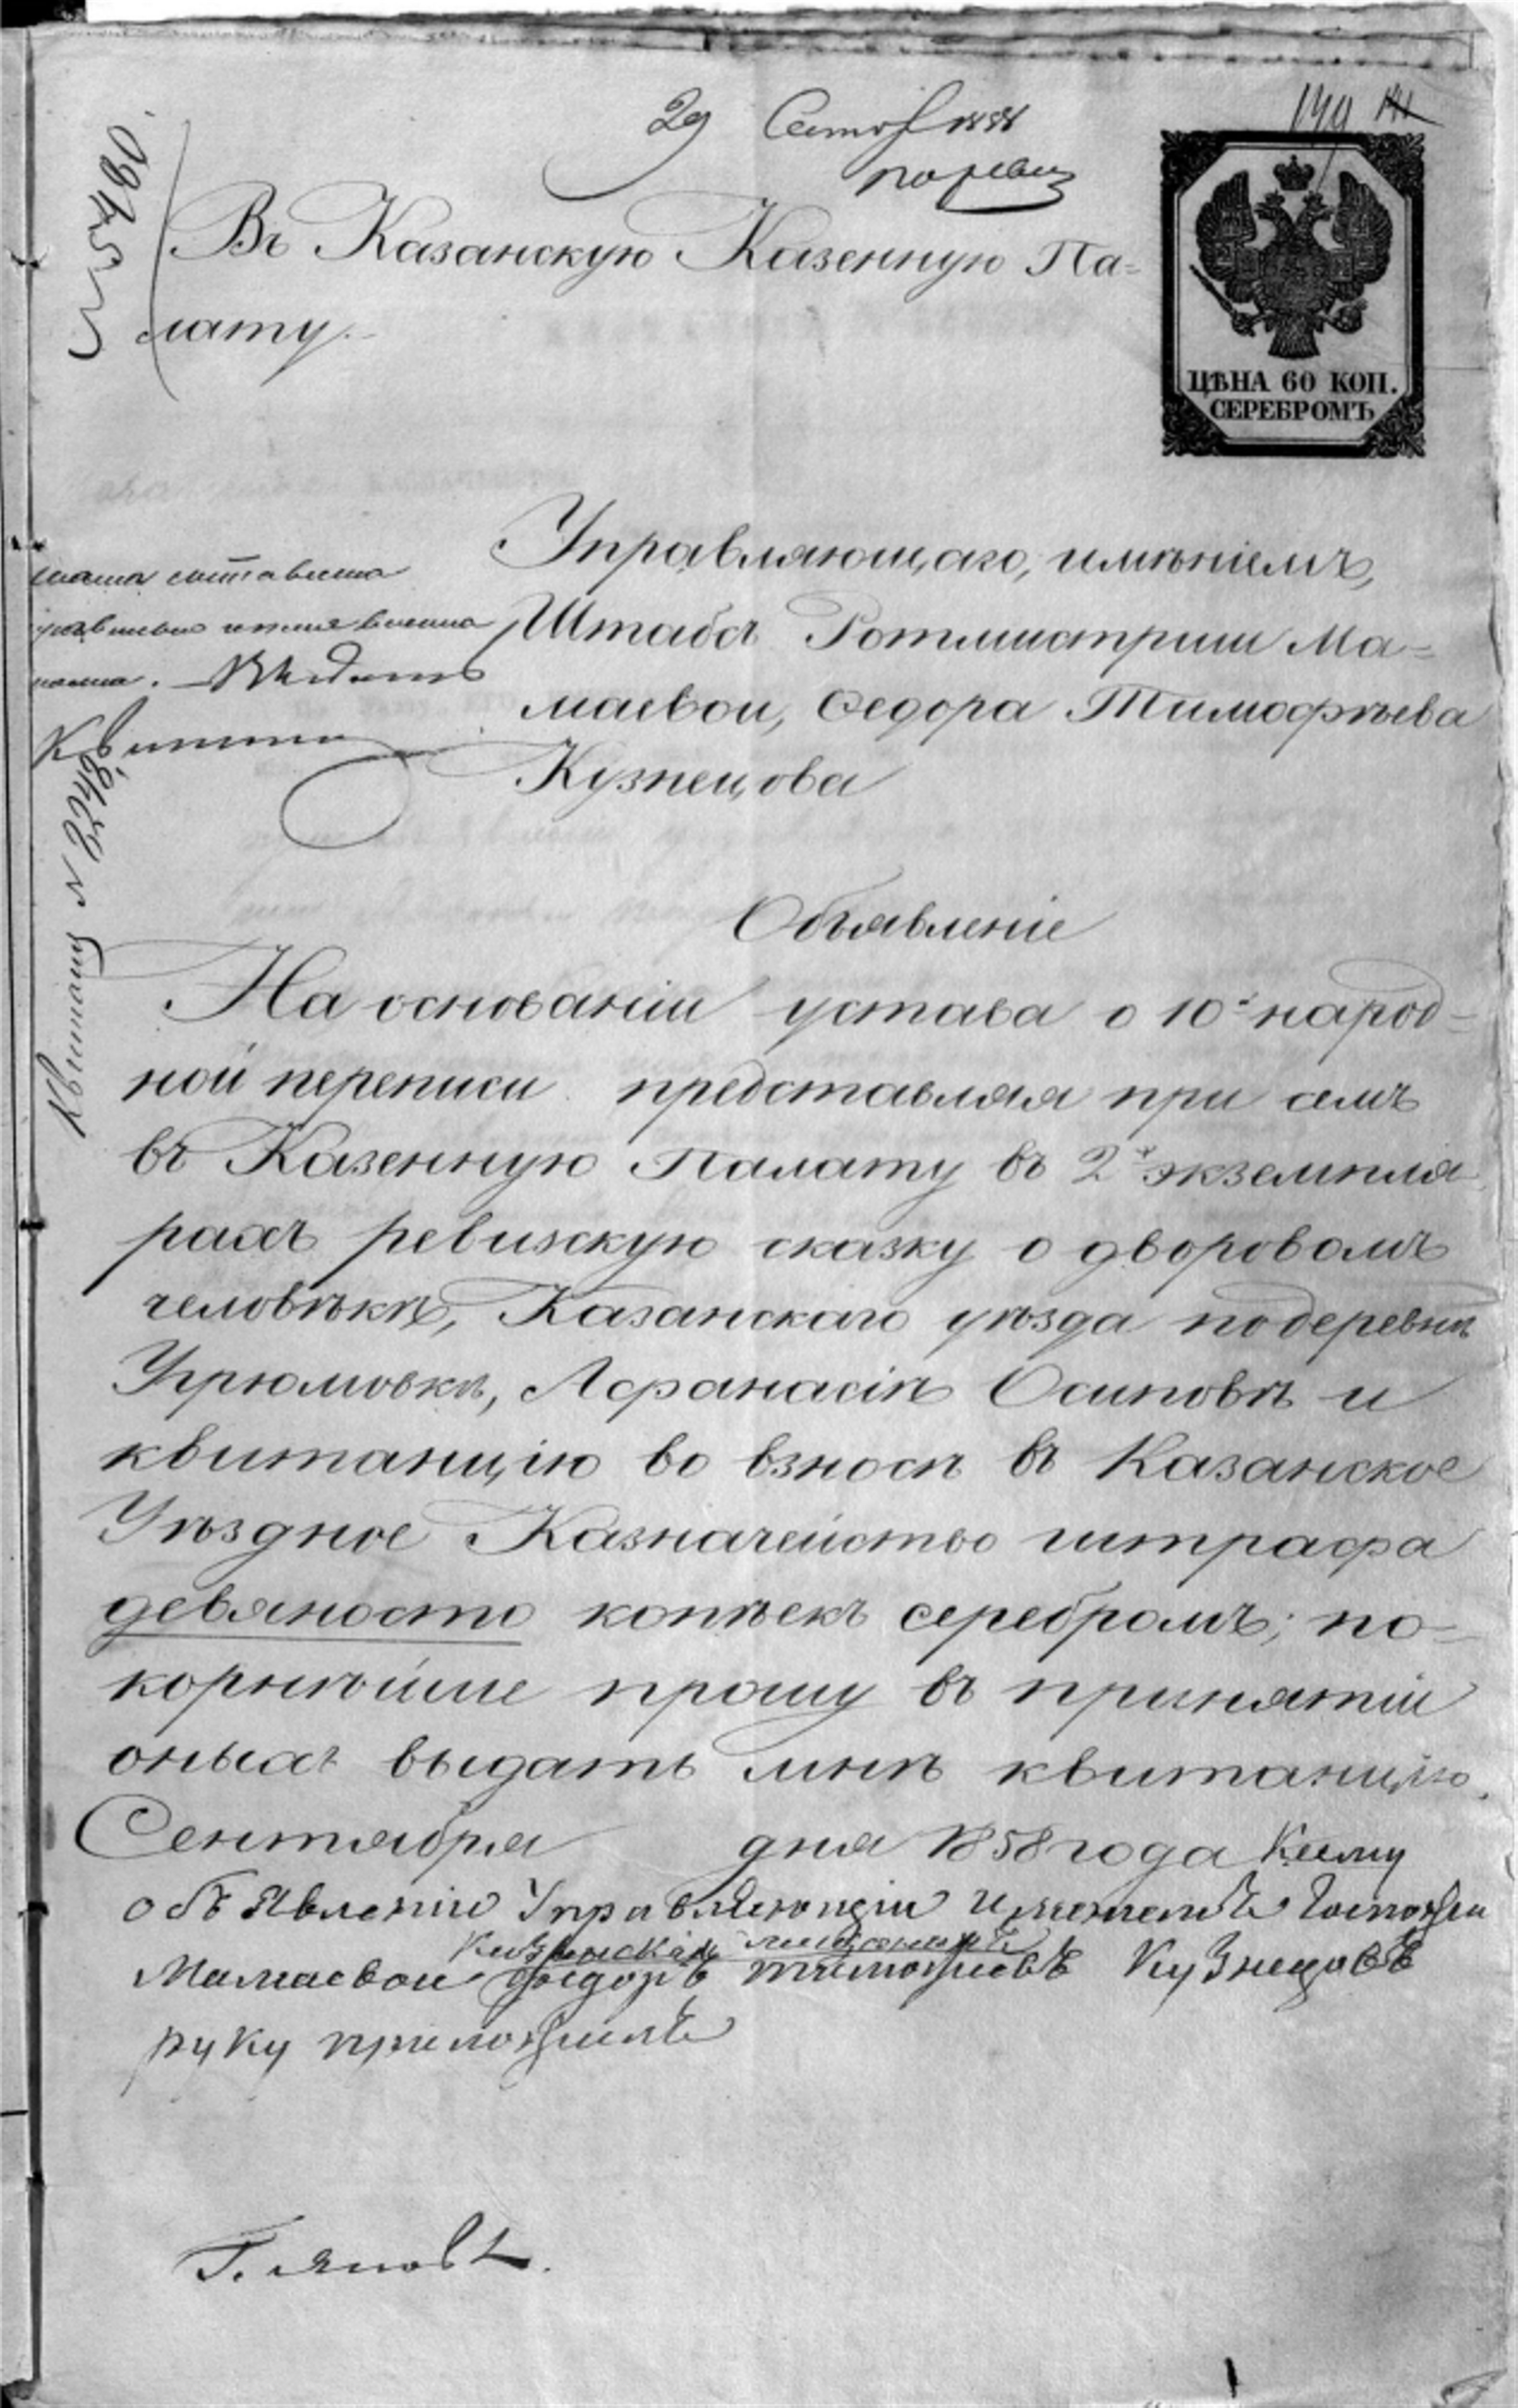 29 Сентяб 1858
по ревиз
149
№ 5490.
Въ Казанскую Казенную Па=
лату.
ЦѢНА 60 КОП.
СЕРЕБРОМЪ
Управляющаго, имѣніемъ,
Штабсъ Ротмистрши Ма=
маевой, Ѳедора Тимофѣева
Кузнецова
составлена
Выдать
Квитанц
Квитанц N 22468
Объявленіе
На основаніи устава о 10й народ=
ной переписи представляя при семъ
въ Казенную Палату въ 2х экземпля
рахъ ревижскую сказку о дворовомъ
человѣкѣ, Казанскаго уѣзда по деревнѣ
Угрюмовкѣ, Афанасіѣ Осиповѣ и
квитанцію во взносѣ въ Казанское
Уѣздное Казначейство штрафа
девяносто копѣекъ серебромъ; по=
корнѣйше прошу въ принятіи
оныхъ выдать мнѣ квитанцію.
Сентября дня 1858 года Ксему
объявленію Управляющій имениемъ Госпожи
Мамаевой Федоръ тимофиевъ Кузнецовъ
руку приложилъ